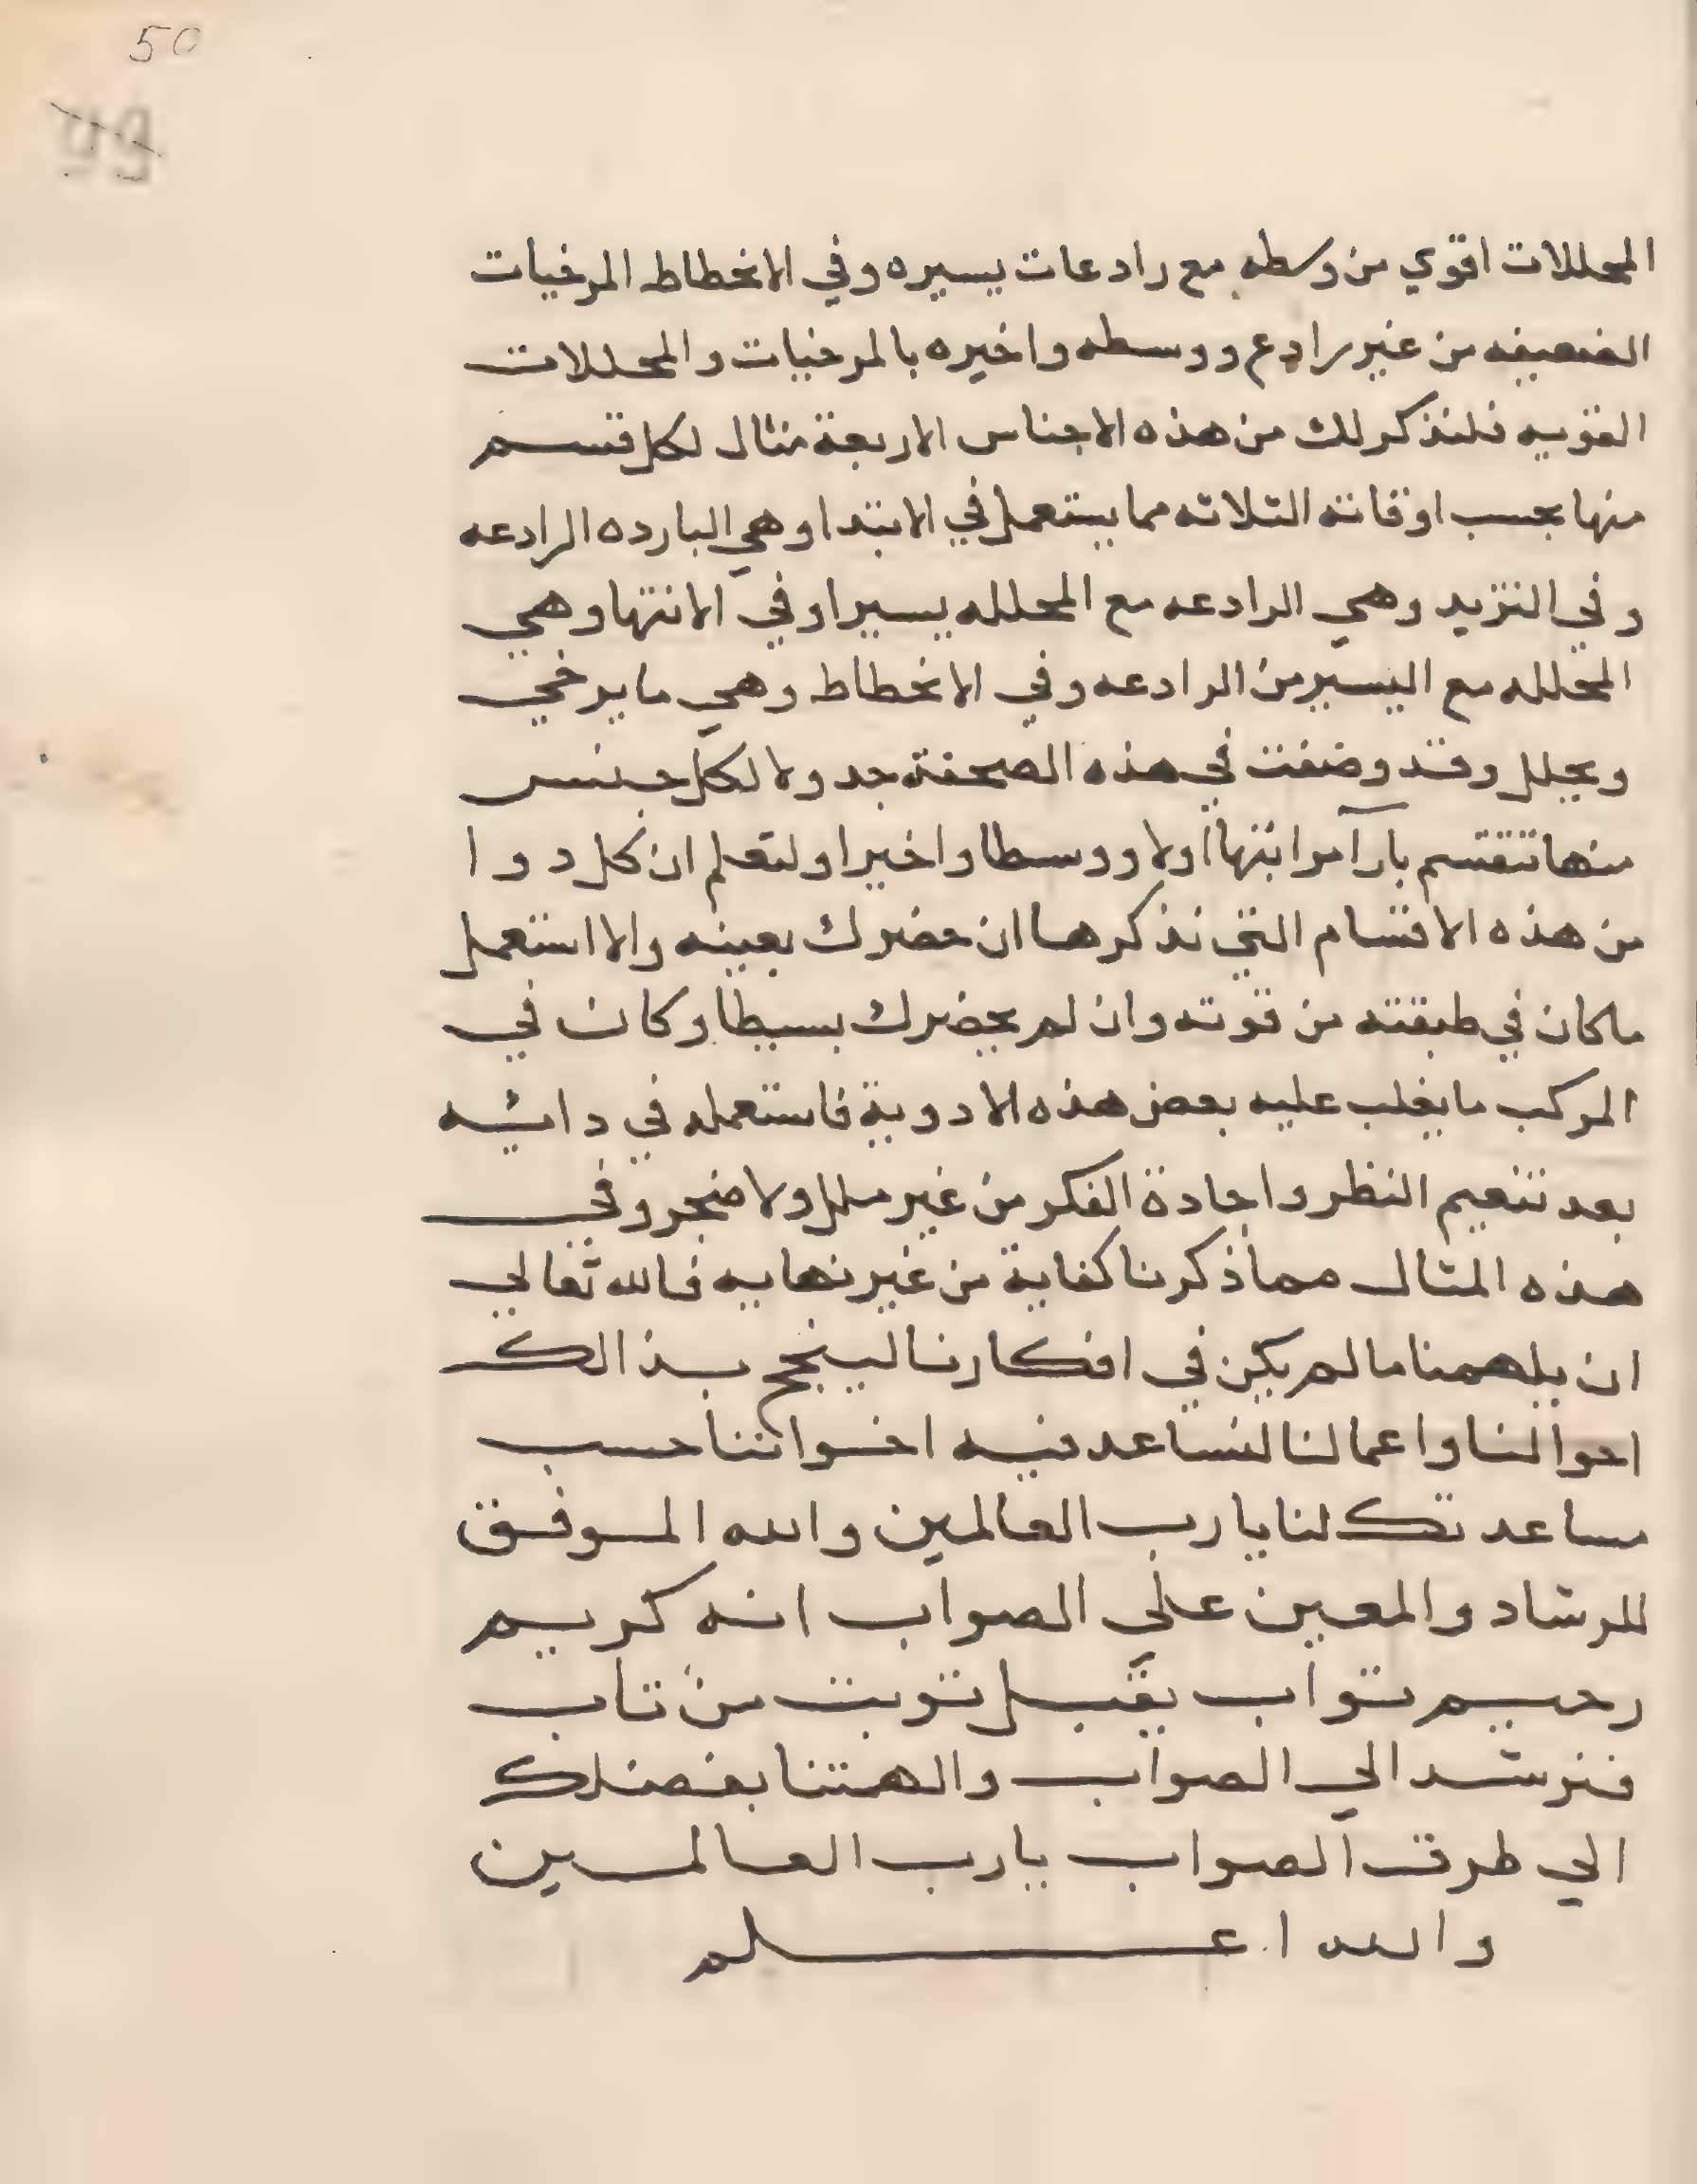 50
49
المحللات اقوي من وسطه مع رادعات يسيره وفي الانحطاط المرخيات
الضعيفه من غير رادع ووسطه واخيره بالمرخيات والمحللات
القويه فلنذكر لك من هذه الاجناس الاربعة مثال لكل قسم
منها بحسب اوقاته الثلاثه مما يستعمل في الابتدا وهي البارده الرادعه
وفي التزيد وهي الرادعه مع المحلله يسيرا وفي الانتها وهي
المحلله مع اليسير من الرادعه وفي الانحطاط وهي ما يرخي
ويحلل وقد وضعت في هذه الصحفة جدولا لكل جنس
منها تنقسم بارآ مراتبها اولا ووسطا واخيرا ولتعلم ان كل دوا
من هذه الاقسام التي نذكرها ان حضرك بعينه والا استعمل
ماكان في طبقته من قوته وان لم يحضرك بسيطا وكان في
المركب ما يغلب عليه بعض هذه الادوية فاستعمله في دائه
بعد تنعيم النظر واجادة الفكر من غير ملل ولا ضجر وفي
هذه المثال مما ذكرنا كفاية من غير نهايه فالله تعالي
ان يلهمنا ما لم يكن في افكارنا لينجح بذالك
احوالنا واعمالنا لنساعد فيه اخواننا حسب
مساعدتك لنا يا رب العالمين والله الموفق
للرشاد والمعين علي الصواب انه كريم
رحيم تواب يقبل توبت من تاب
فنرشد الي الصواب والهمتنا بفضلك
الي طرق الصواب يا رب العالمين
والله اعلم